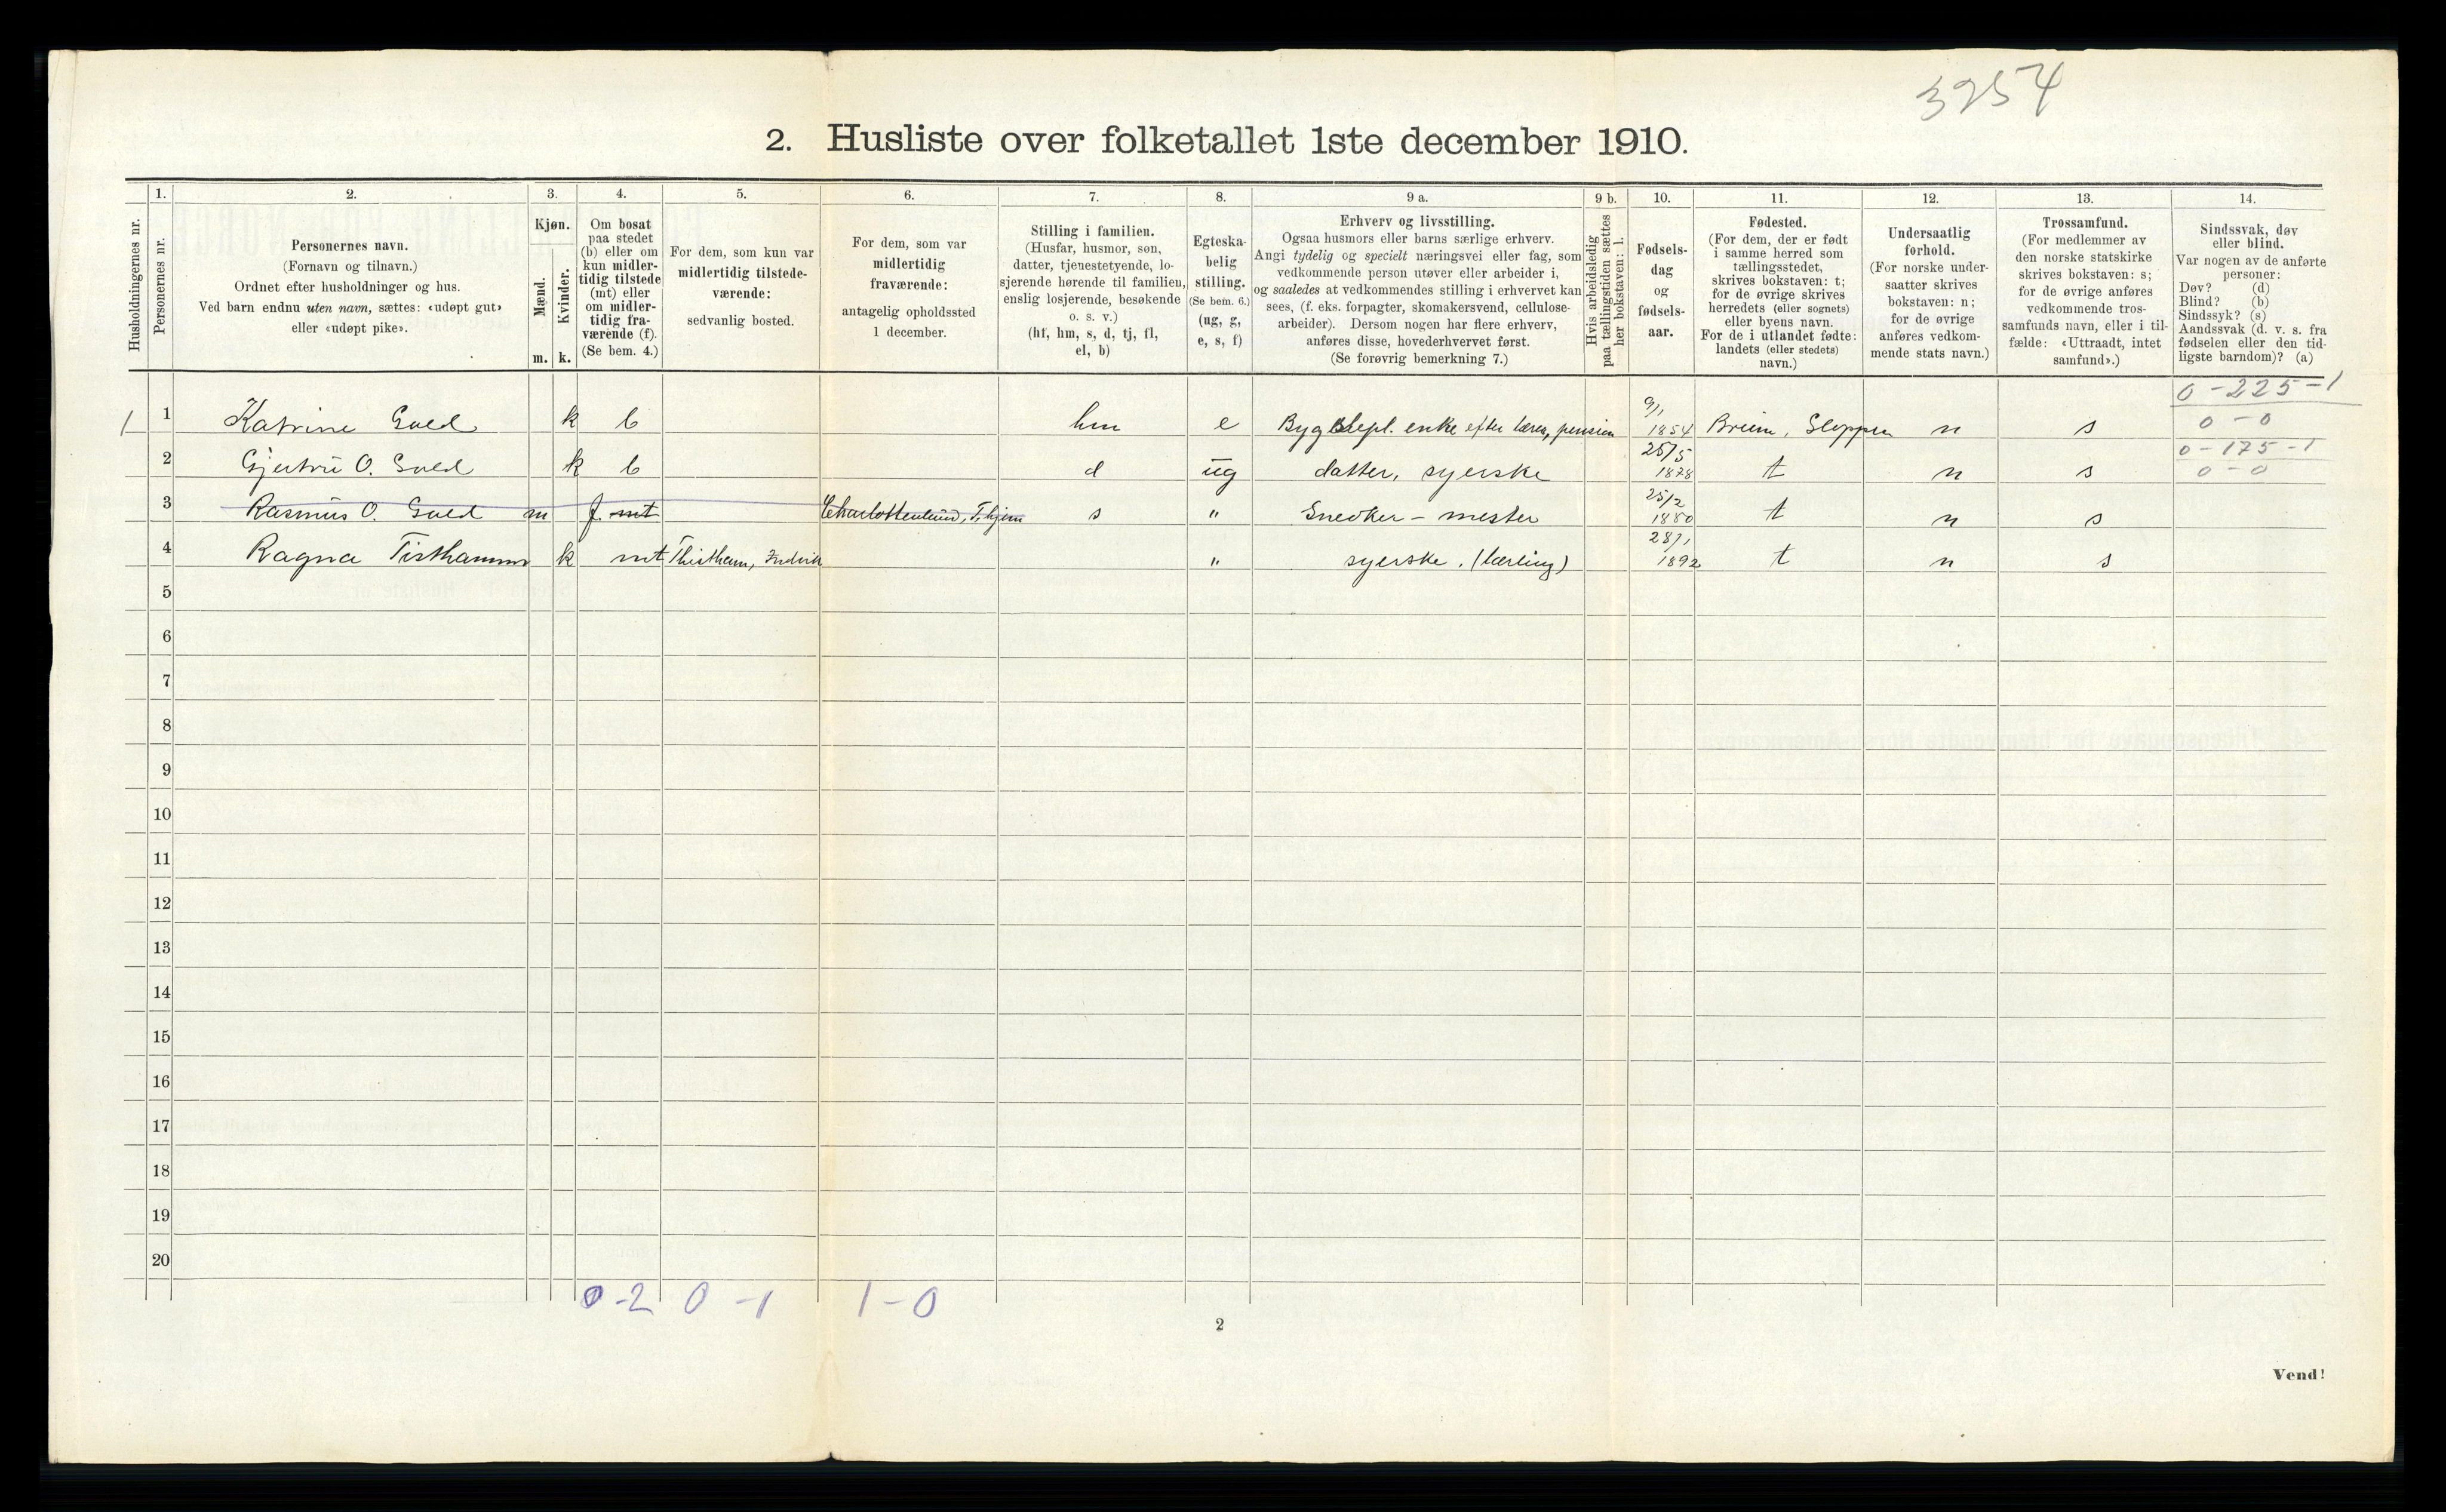 3254
2. Husliste over folketallet 1ste december 1910.
1. 2. 3. 4. 5. 6. 7. 8. 9 a. 9 b. 10. 11. 12. 13. 14.
Husholdningernes nr.
Personernes nr.
Personernes navn.
(Fornavn og tilnavn.)
Ordnet efter husholdninger og hus.
Ved barn endnu uten navn, sættes: «udøpt gut»
eller «udøpt pike».
Kjøn.
Mænd.
Kvinder.
m. k.
Om bosat
paa stedet
(b) eller om
kun midler-
tidig tilstede
(mt) eller
om midler-
tidig fra-
værende (f).
(Se bem. 4.)
For dem, som kun var
midlertidig tilstede-
værende:
sedvanlig bosted.
For dem, som var
midlertidig
fraværende:
antagelig opholdssted
1 december.
Stilling i familien.
(Husfar, husmor, søn,
datter, tjenestetyende, lo-
sjerende hørende til familien,
enslig losjerende, besøkende
o. s. v.)
(hf, hm, s, d, tj, fl,
el, b)
Egteska-
belig
stilling.
(Se bem. 6.)
(ug, g,
e, s, f)
Erhverv og livsstilling.
Ogsaa husmors eller barns særlige erhverv.
Angi tydelig og specielt næringsvei eller fag, som
vedkommende person utøver eller arbeider i,
og saaledes at vedkommendes stilling i erhvervet kan
sees, (f. eks. forpagter, skomakersvend, cellulose-
arbeider). Dersom nogen har flere erhverv,
anføres disse, hovederhvervet først.
(Se forøvrig bemerkning 7.)
Hvis arbeidsledig
paa tællingstiden sættes
her bokstaven: l.
Fødsels-
dag
og
fødsels-
aar.
Fødested.
(For dem, der er født
i samme herred som
tællingsstedet,
skrives bokstaven: t;
for de øvrige skrives
herredets (eller sognets)
eller byens navn.
For de i utlandet fødte:
landets (eller stedets)
navn.)
Undersaatlig
forhold.
(For norske under-
saatter skrives
bokstaven: n;
for de øvrige
anføres vedkom-
mende stats navn.)
Trossamfund.
(For medlemmer av
den norske statskirke
skrives bokstaven: s;
for de øvrige anføres
vedkommende tros-
samfunds navn, eller i til-
fælde: «Uttraadt, intet
samfund».)
Sindssvak, døv
eller blind.
Var nogen av de anførte
personer:
Døv? (d)
Blind? (b)
Sindssyk? (s)
Aandssvak (d. v. s. fra
fødselen eller den tid-
ligste barndom)? (a)
0-225-1
1 1 Katrine Gved k b hm e enke efter lærer, pension 9/1 1854 Breim, Gloppen n s 0-0
0-175-1
2 Gjertrü O. Gved k b d ug datter, syerske 25/5 1878 t n s 0-0
3 Rasmus O. Gved m f mt Charlottenlund, T.hjem s " Snedker-mester 25/2 1880 t n s
4 Ragna Tisthammer k mt Thistham, Indvik " syerske. (lærling) 28/1 1892 t n s
5
6
7
8
9
10
11
12
13
14
15
16
17
18
19
20
0-2 0-1 1-0
2
Vend!